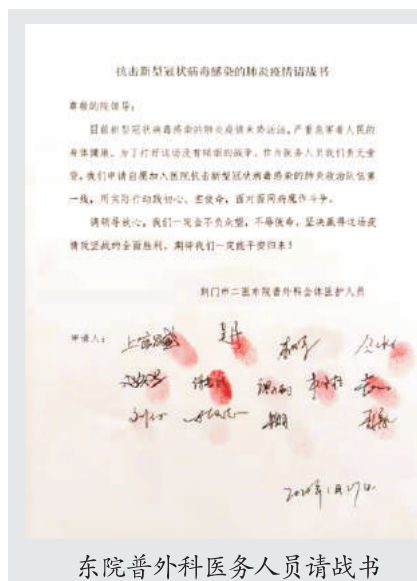 抗击新型冠状病毒感染的肺炎疫情请战书
尊敬的院领导：
目前新型冠状病毒感染的肺炎疫情来势汹汹，严重危害着人民的
身体健康。为了打好这场没有硝烟的战争，作为医务人员我们责无旁
贷，我们申请自愿加入医院抗击新型冠状病毒感染的肺炎救治队伍第
一线，用实际行动践初心、担使命，面对面同病魔作斗争。
请领导放心，我们一定会不负众望，不辱使命，坚决赢得这场疫
情攻坚战的全面胜利，期待我们一定能平安归来！
荆门市二医东院普外科全体医护人员
申请人：
2020年1月27日
东院普外科医务人员请战书